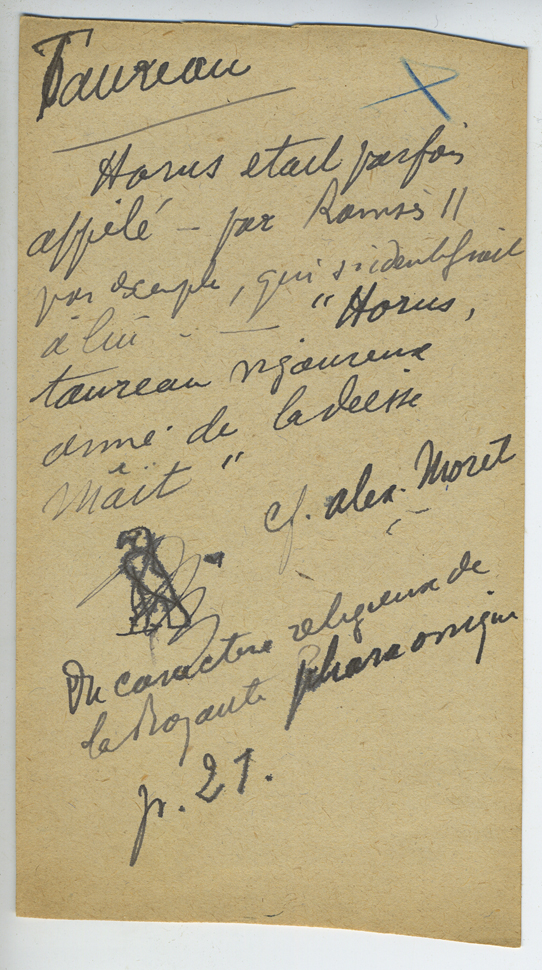 Taureau
Horus etait parfois
appelé – par Ramsès II
par exemple, qui s'identifiait
à lui – — "Horus,
taureau vigoureux
armé de la déesse
Mâït"
cf. Alex. Moret
Du caractère religieux de
la Royauté pharaonique
p. 21.